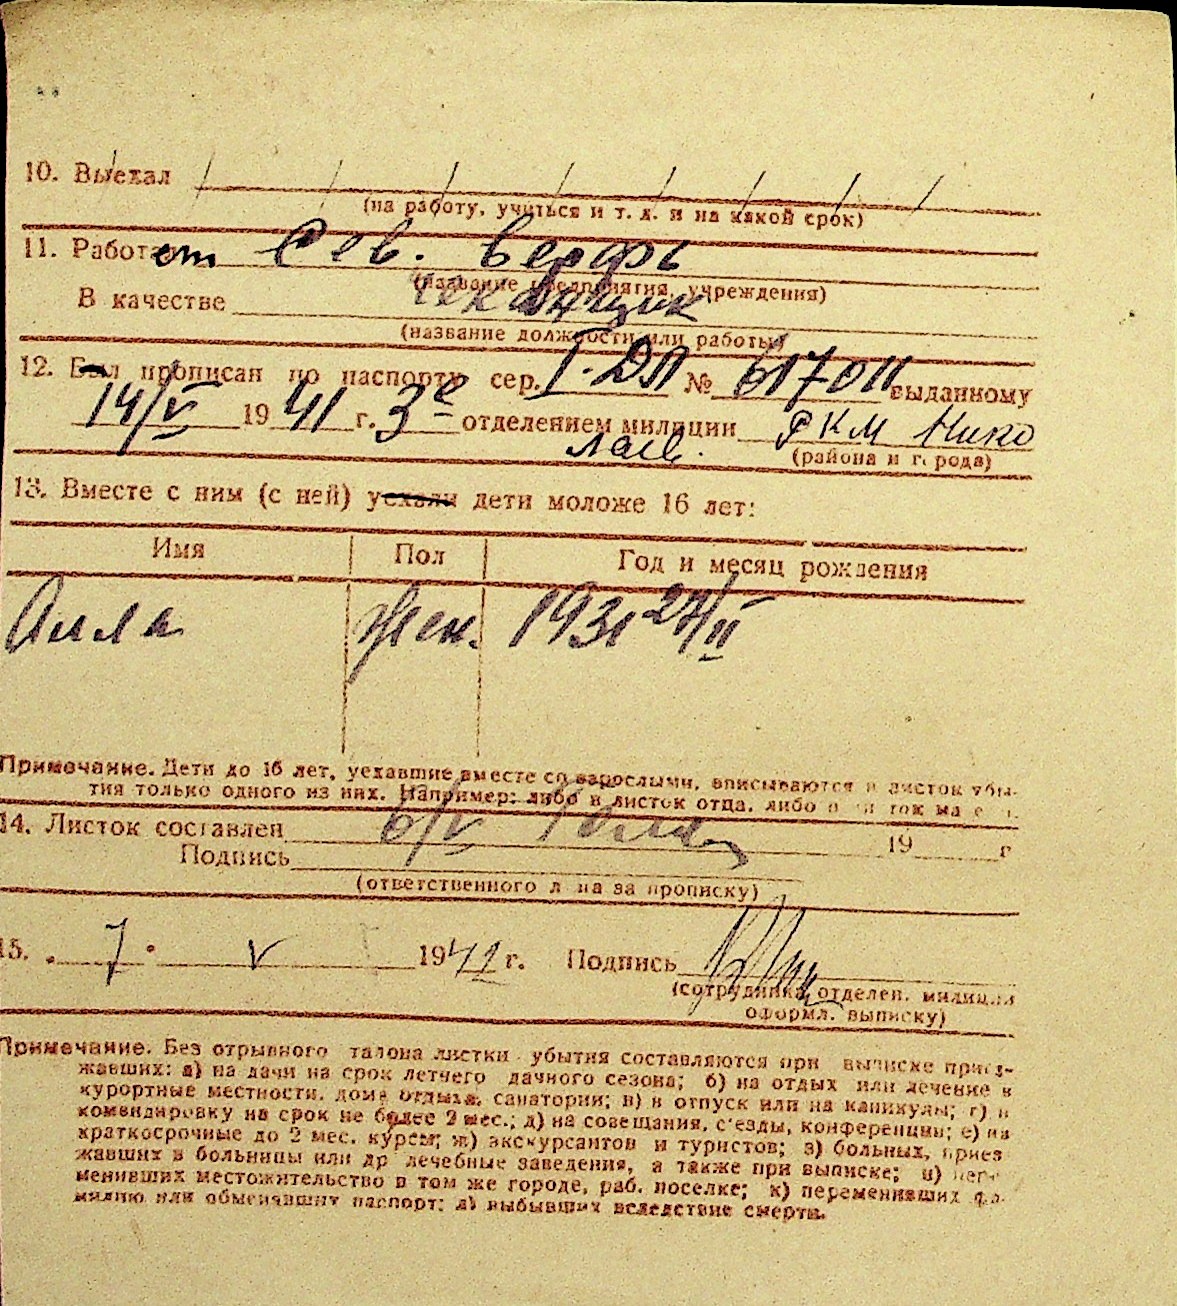 10. Выехал
(на работу, учиться и т. д. и на какой срок)
11. Работает Сев. верфь
(название предприятия, учреждения)
В качестве чеканщик
(название должности или работы)
12. Был прописан по паспорту сер. I-ДЛ № 617011 выданному
14/V 1941 г. 3е отделением милиции РКМ Нико
лаев. (района и города)
13. Вместе с ним (с ней) уехали дети моложе 16 лет:
Имя Пол Год и месяц рождения
Алла Жен. 1931 27/II
Примечание. Дети до 16 лет, уехавшие вместе со взрослыми, вписываются в листок убы-
тия только одного из них. Например: либо в листок отца, либо в листок ма
14. Листок составлен 6/V 19 г
Подпись
(ответственного лица за прописку)
15. „ 7 " V 1941 г. Подпись
(сотрудника отделен. милиции
оформл. выписку)
Примечание. Без отрывного талона листки убытия составляются при выписке приез-
жавших: а) на дачи на срок летнего дачного сезона; б) на отдых или лечение в
курортные местности, дома отдыха, санатории; в) в отпуск или на каникулы; г) в
командировку на срок не более 2 мес.; д) на совещания, с'езды, конференции; е) на
краткосрочные до 2 мес. курсы; ж) экскурсантов и туристов; з) больных, приез
жавших в больницы или др лечебные заведения, а также при выписке; и) пере-
менивших местожительство в том же городе, раб. поселке; к) переменивших фа-
милию или обменявших паспорт; л) выбывших вследствие смерти.